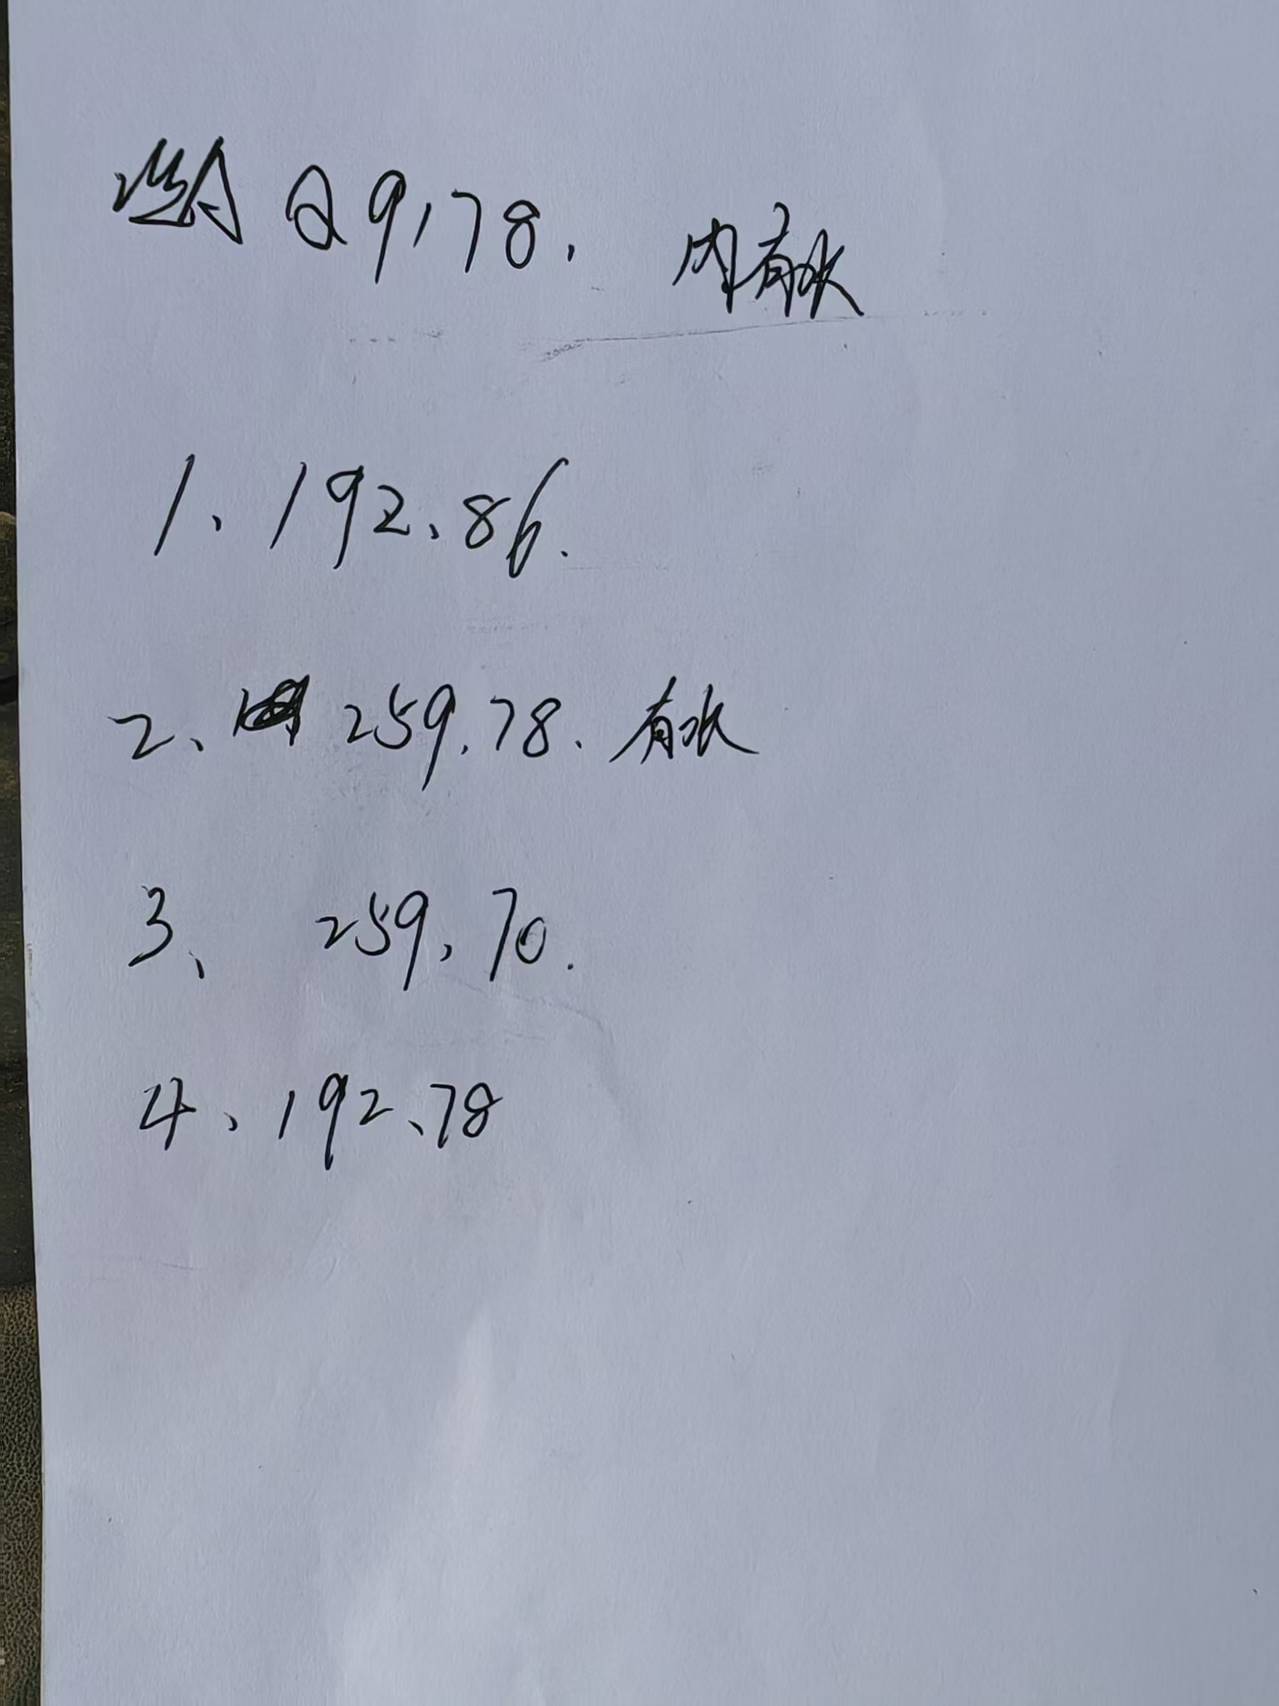 29.78. 内有水
1、192.86.
2、259.78、有水
3、 259.70.
4、192.78